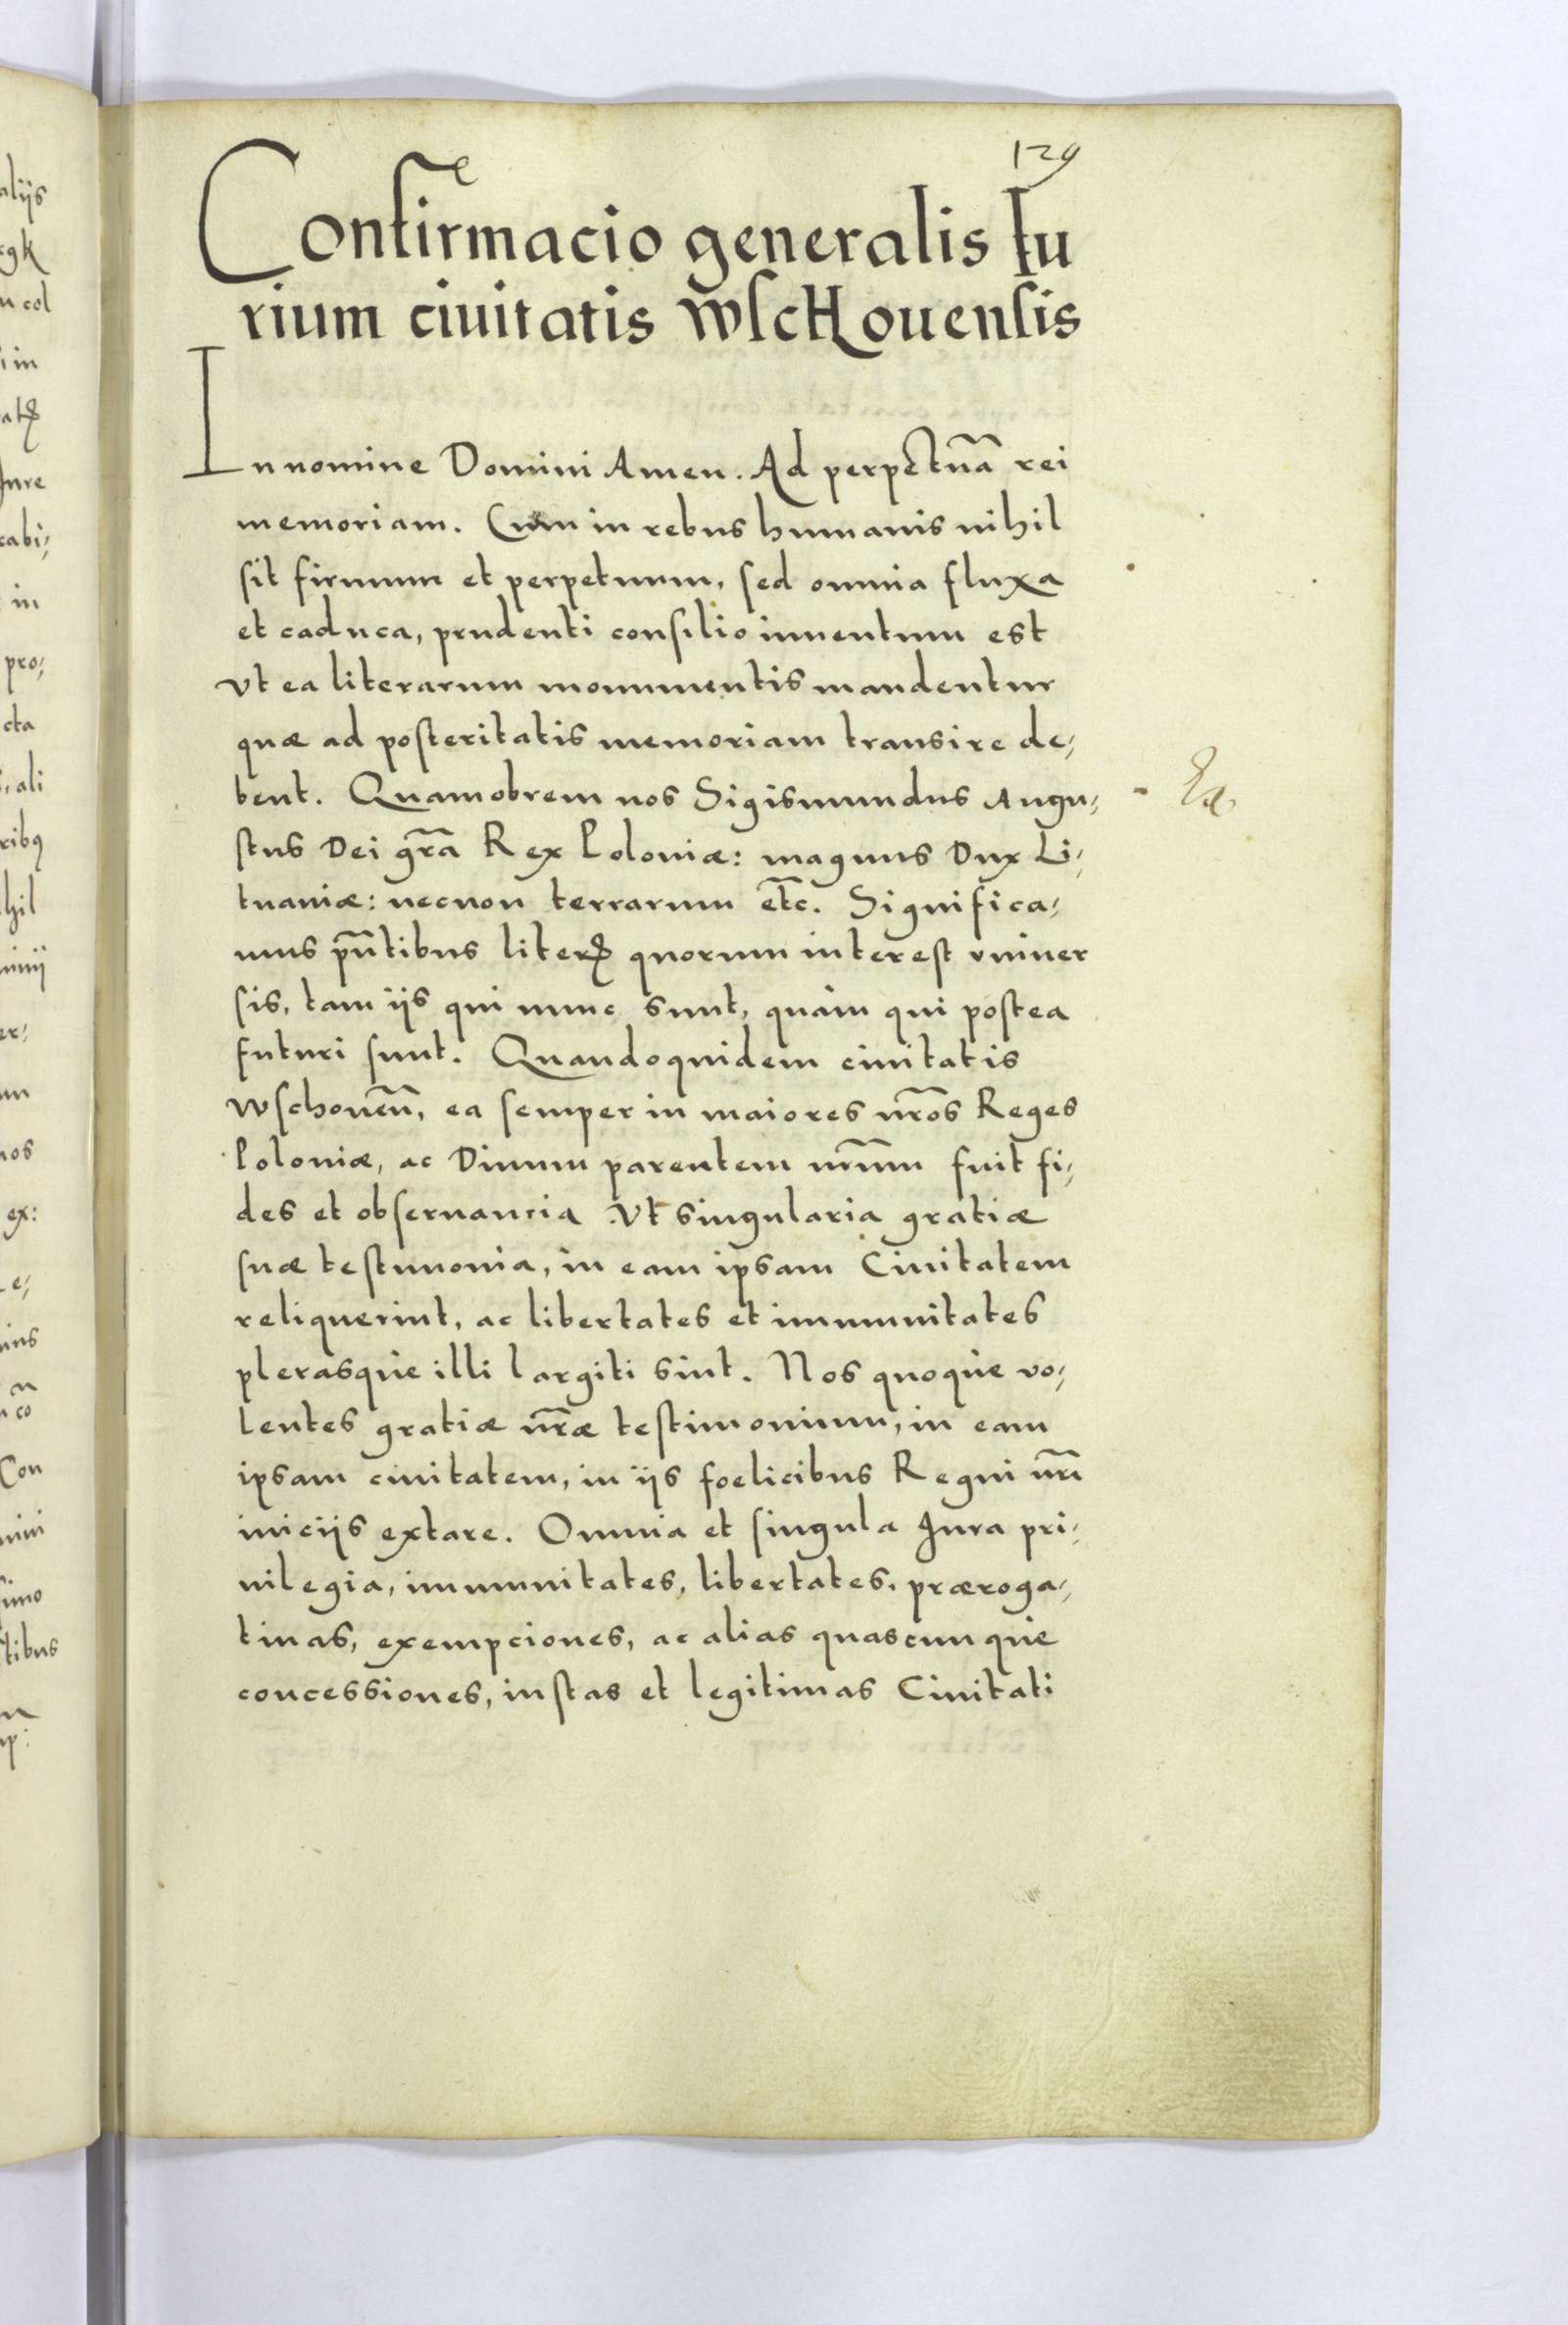 129
Confirmacio generalis Iu
rium ciuitatis WscHouensis
In nomine Domini Amen. Ad perpetuã rei
memoriam. Cum in rebus humanis nihil
sit firmum et perpetuum, sed omnia fluxa
et caduca, prudenti consilio inuentum est
vt ea literarum monumentis mandentur
quæ ad posteritatis memoriam transire de⸗
bent. Quamobrem nos Sigismundus Augu⸗
stus Dei gr̃a Rex Poloniæ: magnus Dux Li⸗
tuaniæ: necnon terrarum et̃c. Significa⸗
mus pñtibus literꝝ quorum interest vniuer
sis, tam iis qui nunc sunt, quàm qui postea
futuri sunt. Quandoquidem ciuitatis
Wschoueñ, ea semper in maiores nr̃os Reges
Poloniæ, ac Diuum parentem nr̃um fuit fi⸗
des et obseruancia Vt singularia gratiæ
suæ testimonia, in eam ipsam Ciuitatem
reliquerint, ac libertates et immunitates
plerasque illi largiti sint. Nos quoque vo⸗
lentes gratiæ nr̃æ testimonium, in eam
ipsam ciuitatem, in iis foelicibus Regni nr̃i
iniciis extare. Omnia et singula Jura pri⸗
uilegia, immunitates, libertates, præroga⸗
tiuas, exempciones, ac alias quascunque
concessiones, iustas et legitimas Ciuitati